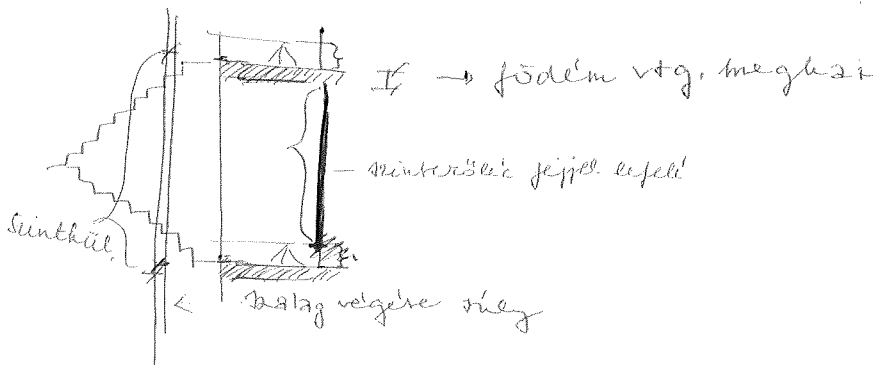 födém vtg. meghat
szintezőléc fejjel lefelé
Szintkül.
szalag végére súly